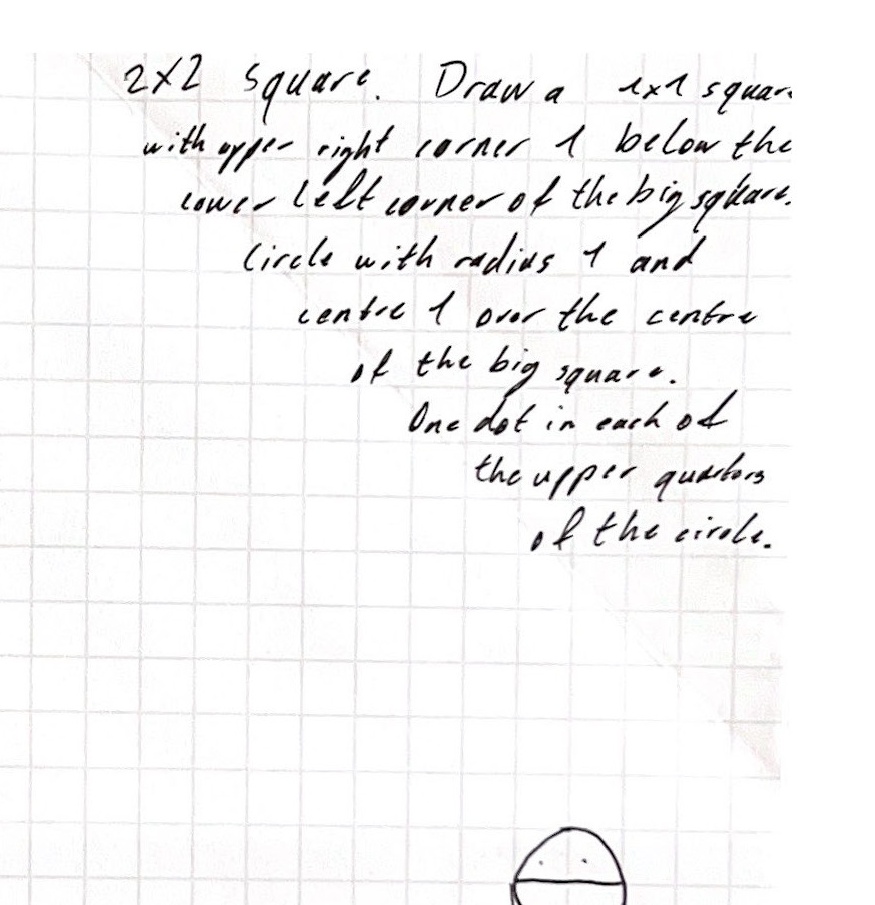 2x2 square. Draw a 1x1 square
with upper right corner 1 below the
lower left corner of the big square.
Circle with radius 1 and
centre 1 over the centre
of the big square.
One dot in each of
the upper quarters
of the circle.